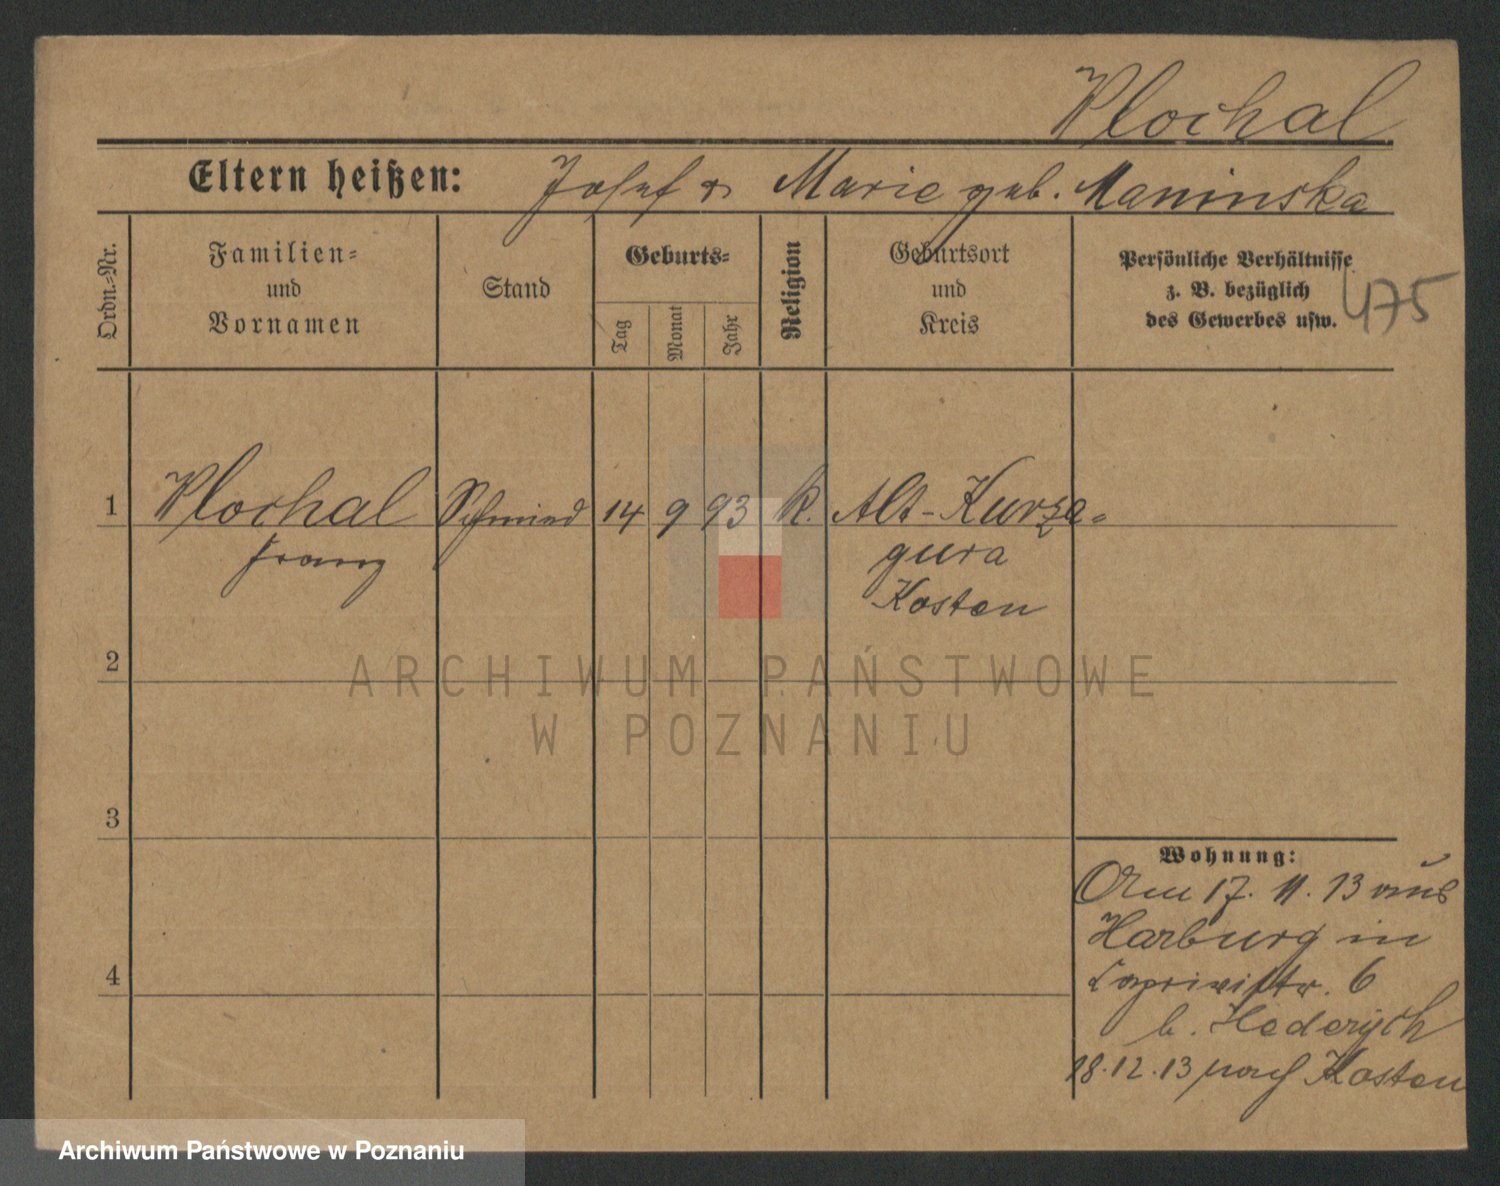 Plochal
Eltern heißen: Josef & Marie geb. Maninska
Ordn.-Nr.
Familien-
und
Vornamen
Stand
Geburts-
Tag
Monat
Jahr
Religion
Geburtsort
und
Kreis
Persönliche Verhältnisse
z. B. bezüglich
des Gewerbes usw.
475
1 Plochal Schmied 14 9 93 k. Alt-Kurza-
Franz gura
Kosten
2
ARCHIWUM PAŃSTWOWE
W POZNANIU
3
Wohnung:
17. 11. 13 aus
Harburg in
4 Caprivistr. 6
b. Hederych
18.12.13 nach Kosten
Archiwum Państwowe w Poznaniu